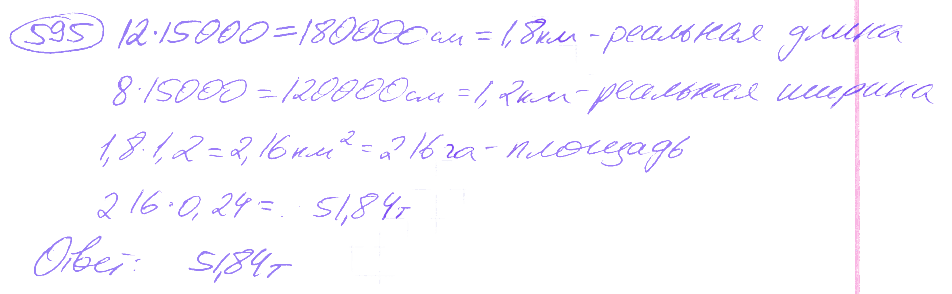 595 12·15000=180000см=1,8км-реальная длина
8·15000=120000см=1,2км-реальная ширина
1,8·1,2=2,16км²=216га-площадь
216·0,24= 51,84т
Ответ: 51,84т